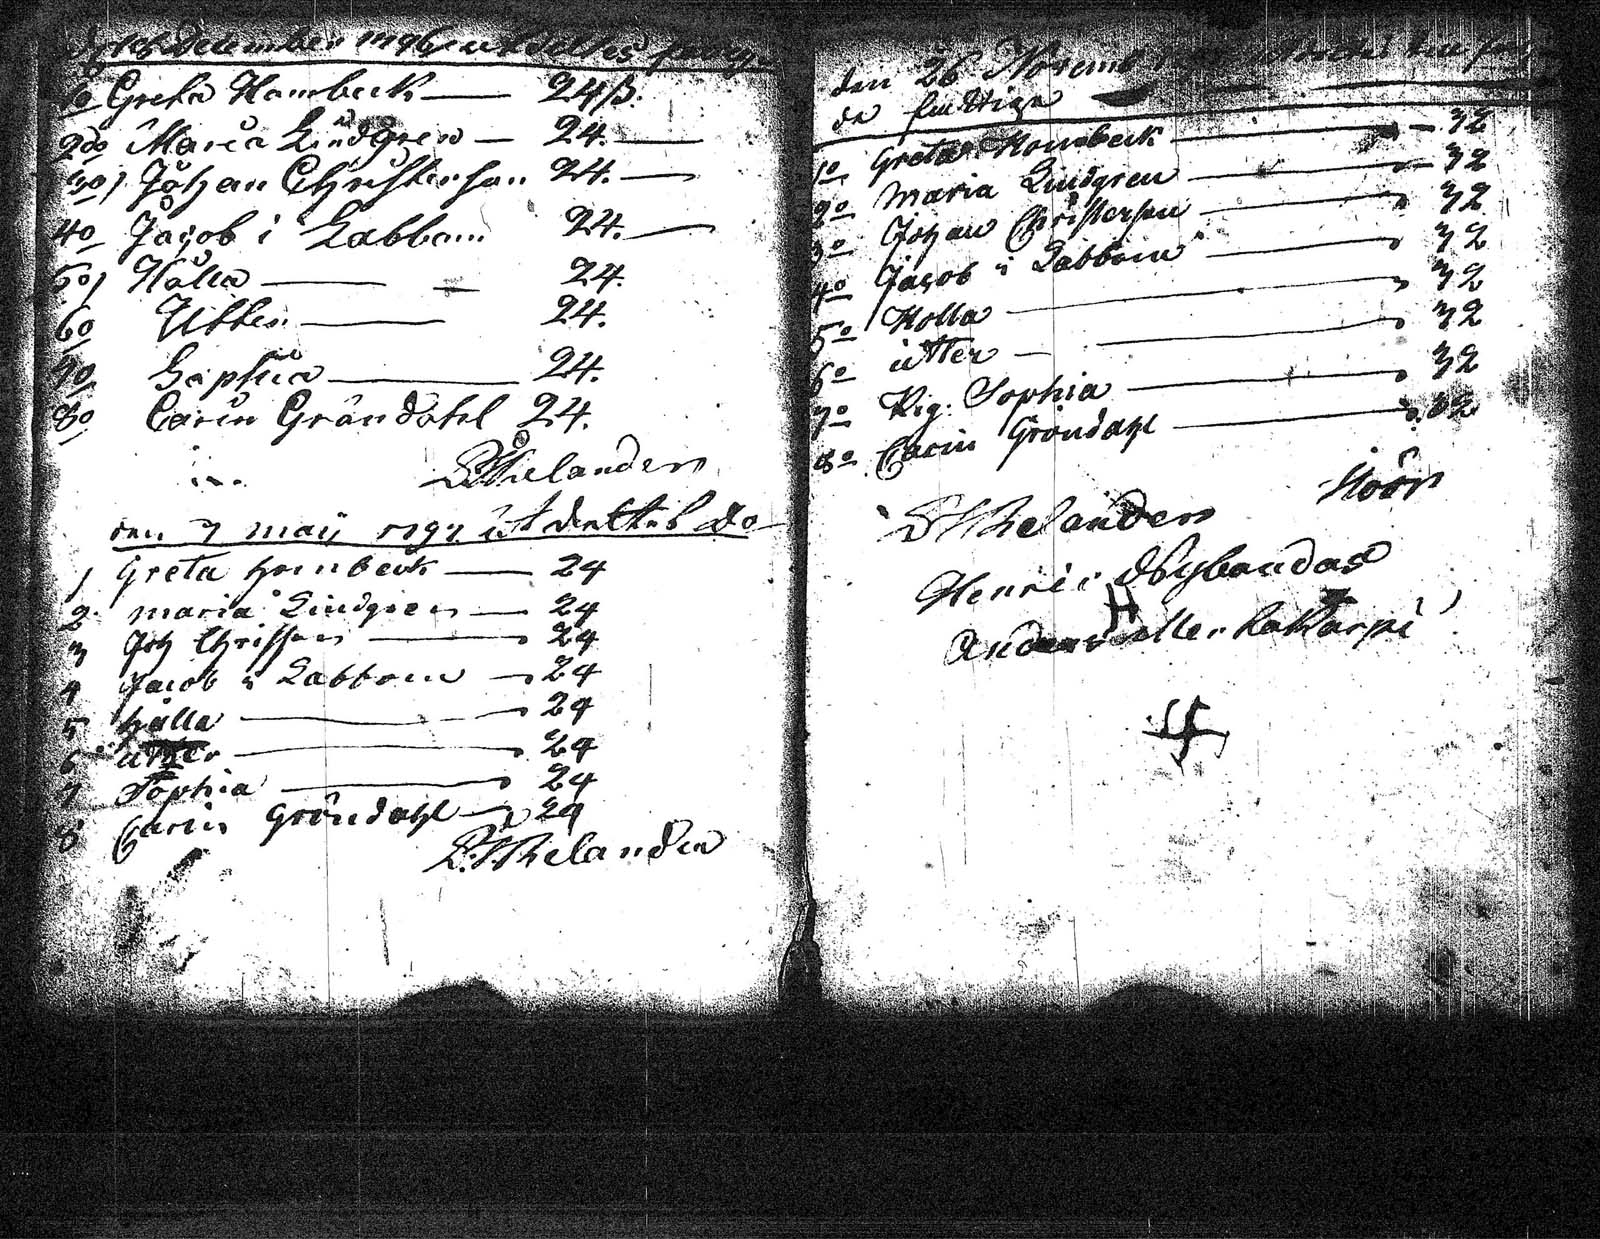 December 1796 utdeltes
1o Greta Hambeck — 24ß.
2do Maria Lindgren — 24.
3o) Johan Christerson 24.
4o Jacob i Labbom 24.
5o) Hålla — 24.
6o Utter — 24.
7o Sophia — 24.
8o Carin Gröndahl 24.
Thelander
den 7 maij 1797 utdeltes do
1 Greta Hambeck — 24
2 maria Lindgren — 24
3 Joh Christerson — 24
4 Jacob i Labbom — 24
5 hålla — 24
6 utter — 24
7 Sophia — 24
8 Carin Gröndahl — 24
Thelander
den 26 Novemb
de fattiga
1o Greta Hombeck — 32
2o Maria Lindgren — 32
3o Johan Christerson — 32
4o Jacob i Labbom — 32
5o Holla — 32
6o utter — 32
7o Pig. Sophia — 32
8o Carin Gröndahl — 32
Thelander
Henric
Anders